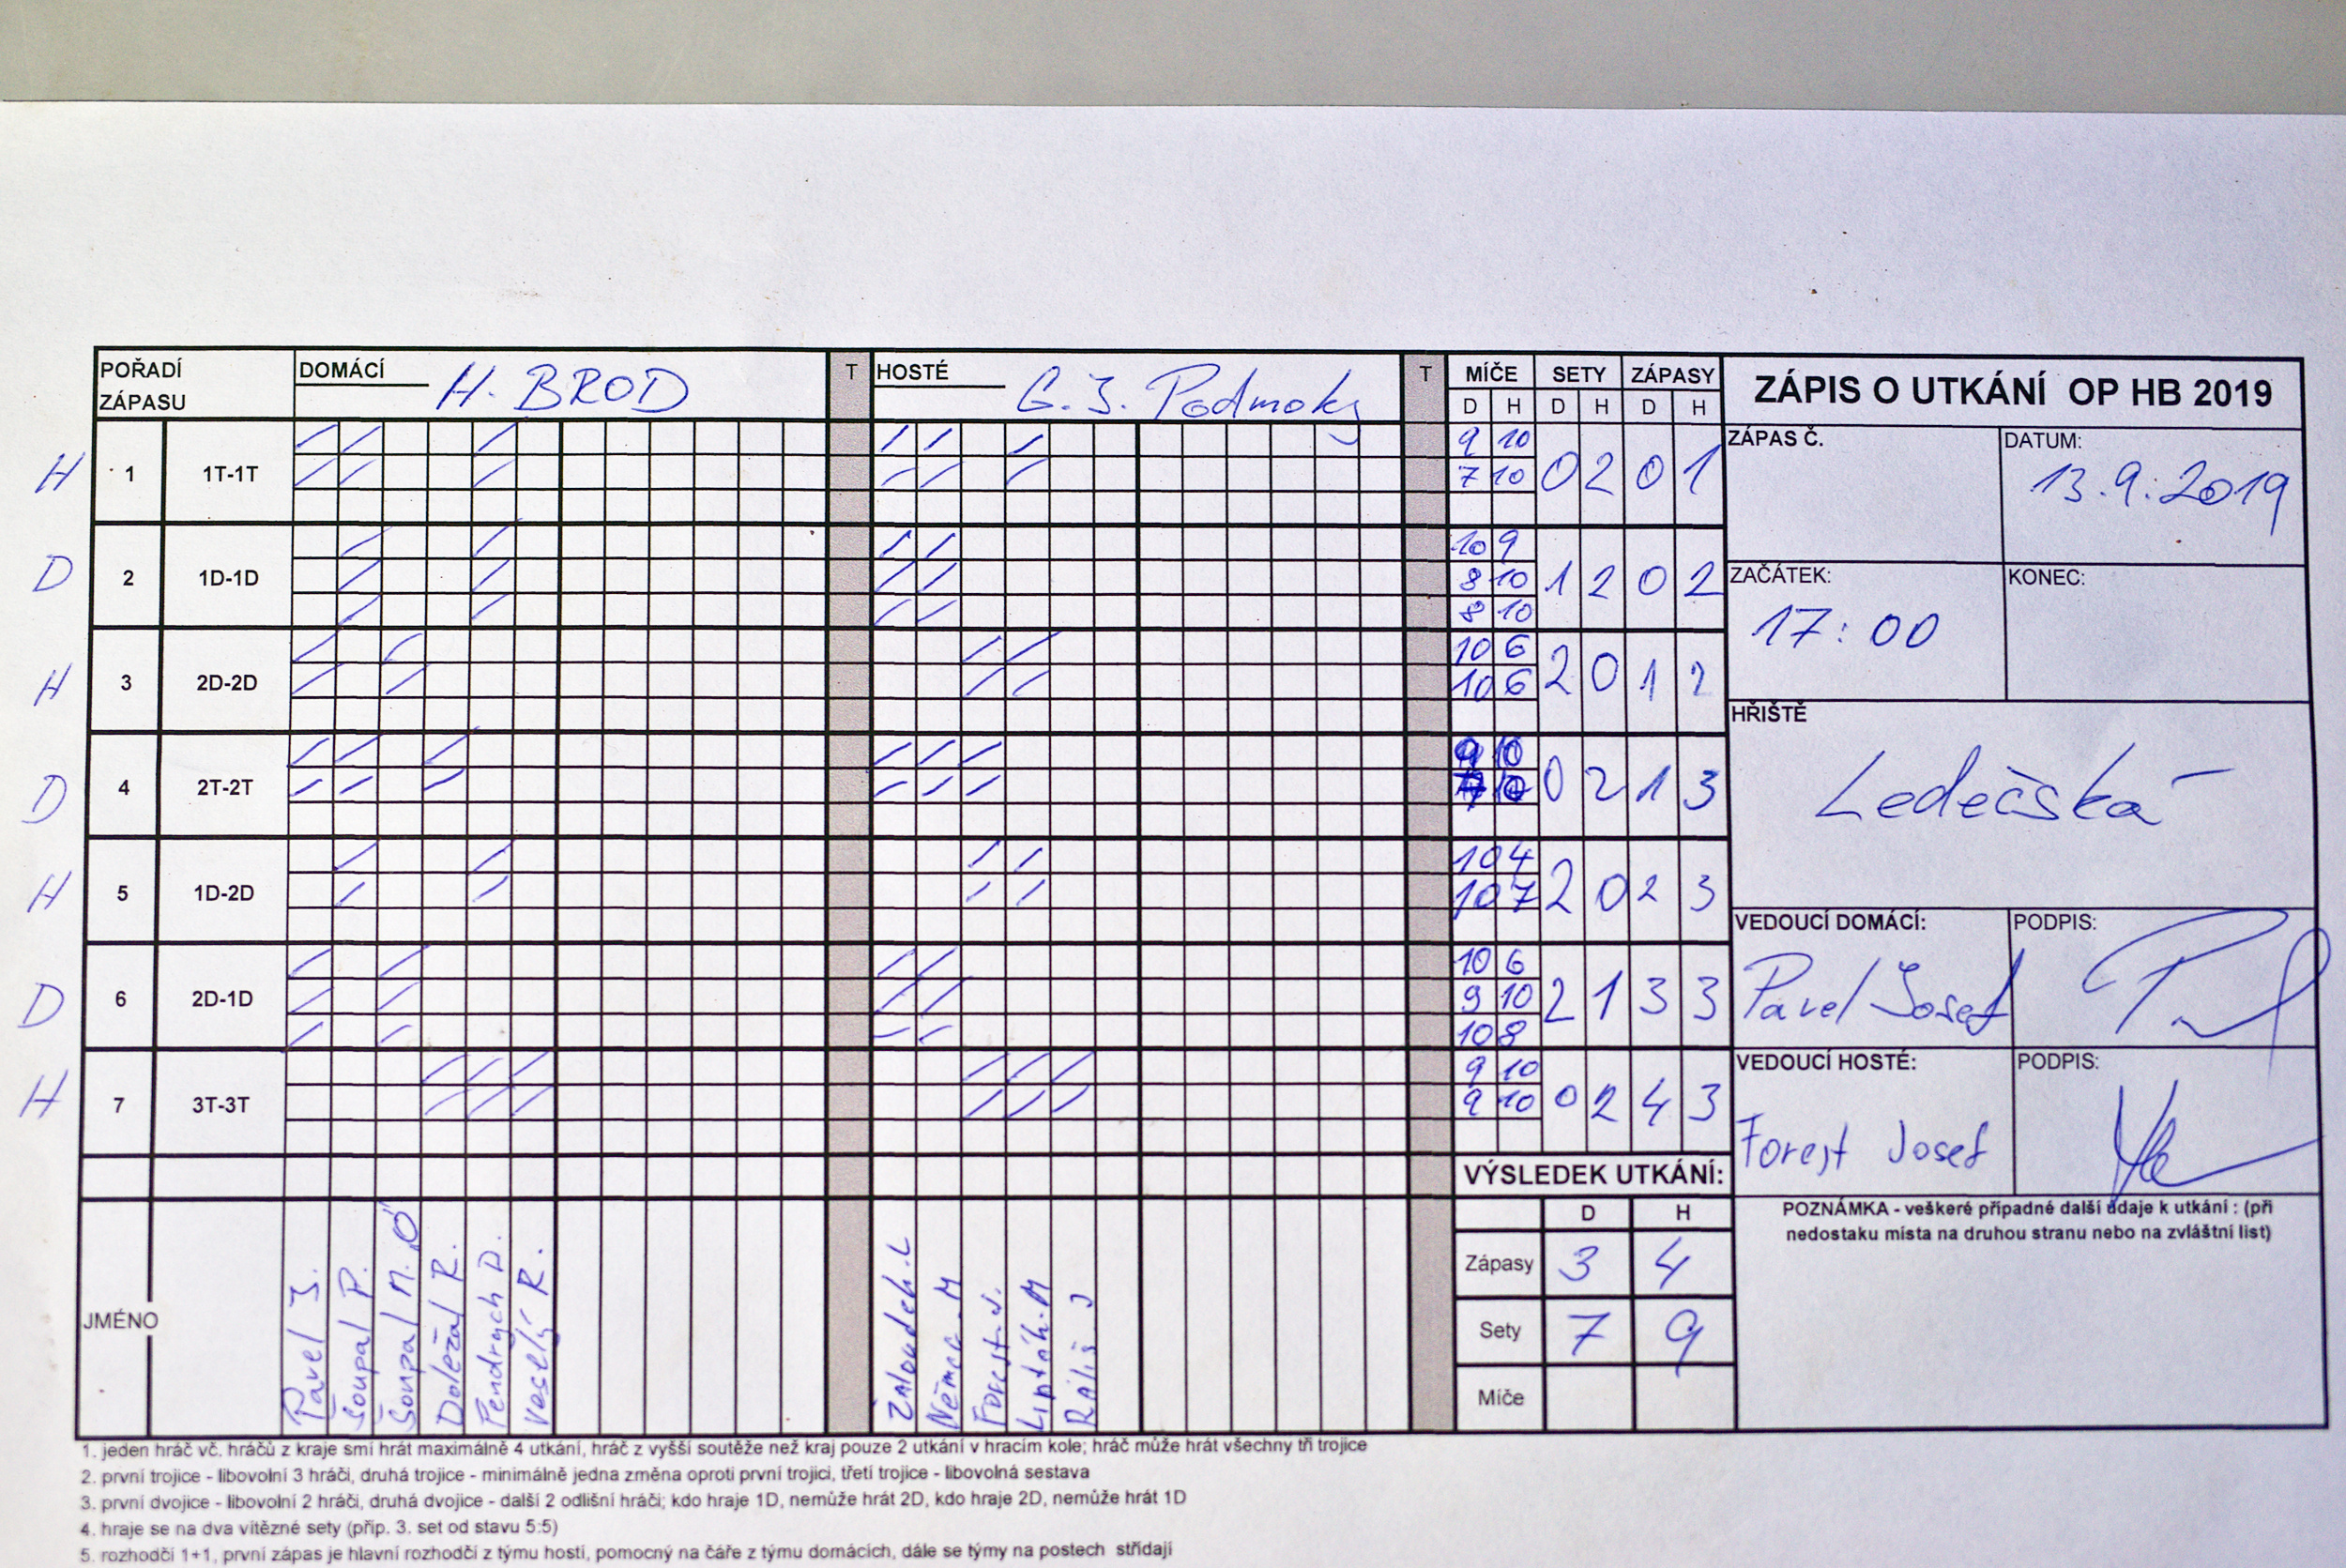 POŘADÍ ZÁPASU DOMÁCÍ H. BROD T HOSTÉ G. J. Podmoky T MÍČE SETY ZÁPASY ZÁPIS O UTKÁNÍ OP HB 2019
D H D H D H
ZÁPAS Č. DATUM: 13.9.2019
H 1 1T-1T 9 10 0 2 0 1
7 10
D 2 1D-1D 10 9 1 2 0 2
8 10
8 10
ZAČÁTEK: 17:00 KONEC:
H 3 2D-2D 10 6 2 0 1 2
10 6
HŘIŠTĚ
Ledečská
D 4 2T-2T 9 10 0 2 1 3
H 5 1D-2D 10 4 2 0 2 3
10 7
VEDOUCÍ DOMÁCÍ: PODPIS:
Pavel Josef
D 6 2D-1D 10 6 2 1 3 3
9 10
10 8
VEDOUCÍ HOSTÉ: PODPIS:
Forejt Josef
H 7 3T-3T 9 10 0 2 4 3
9 10
VÝSLEDEK UTKÁNÍ:
D H
Zápasy 3 4
Sety 7 9
Míče
POZNÁMKA - veškeré případné další údaje k utkání : (při
nedostaku místa na druhou stranu nebo na zvláštní list)
JMÉNO
Pavel J.
Šoupal P.
Šoupal M.
Doležal R.
Fendrych D.
Veselý R.
Žaloudek. L
Němec. M
Forejt. J.
Lipták. M
Ráliš J
1. jeden hráč vč. hráčů z kraje smí hrát maximálně 4 utkání, hráč z vyšší soutěže než kraj pouze 2 utkání v hracím kole; hráč může hrát všechny tři trojice
2. první trojice - libovolní 3 hráči, druhá trojice - minimálně jedna změna oproti první trojici, třetí trojice - libovolná sestava
3. první dvojice - libovolní 2 hráči, druhá dvojice - další 2 odlišní hráči; kdo hraje 1D, nemůže hrát 2D, kdo hraje 2D, nemůže hrát 1D
4. hraje se na dva vítězné sety (příp. 3. set od stavu 5:5)
5. rozhodčí 1+1, první zápas je hlavní rozhodčí z týmu hostí, pomocný na čáře z týmu domácích, dále se týmy na postech střídají